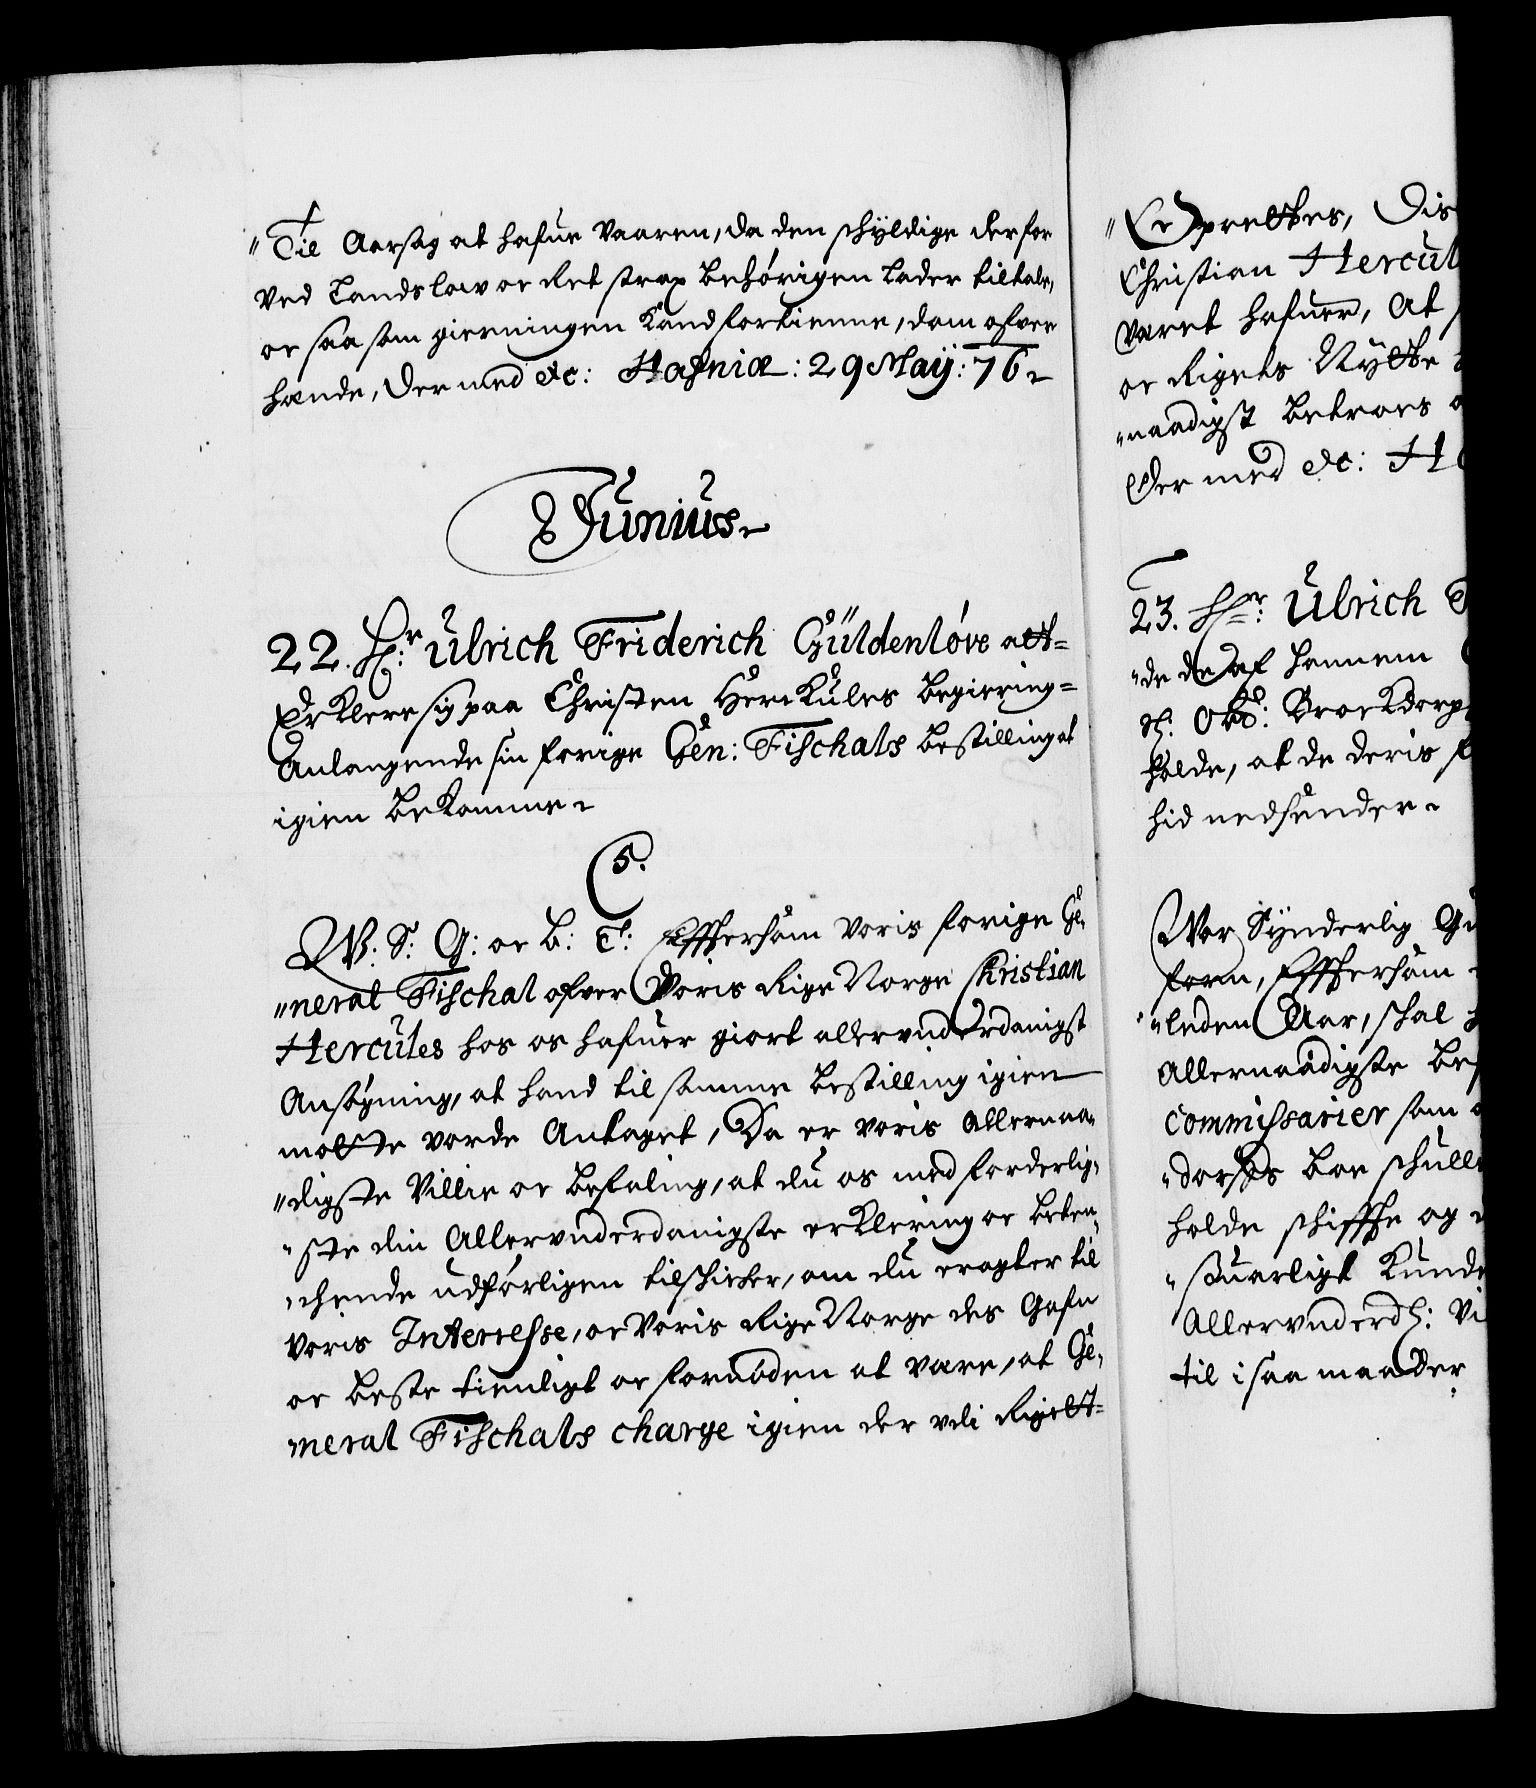 "Til Aarsag at hafue vaaren, da den schyldige derfor
ved Landslow oc Ret strax behörigen lader tiltale,
oc saa som gierningen kand fortienne, dom ofver
hende, Der med &c: Hafniæ: 29 Maÿ: 76.
Junius.
22. Hr: Ulrich Friderich Güldenlöve att=
Erklere sig paa Christen Herckules begiering=
Anlangende sin forige Gen: Fischals bestilling at
igien bekomme.
5.
W: S: G: oc b: T: Effthersom voris forige Ge,
"neral Fischal ofver Voris Rige Norge Christian
Hercules hos os hafuer giort allervnderdanigst
Ansögning, at hand til samme bestilling igien
motte vorde Antaget, Da er voris Allernaa,
"digste Villie oc befaling, at du os med forderlig,
"ste din Allervnderdanigste erklering oc beten,
"chende udförligen tilschicher, om du eragter til
voris Interresse, oc Voris Rige Norge des Gafn
oc beste tienligt oc fornöden at være, at Ge,
"neral Fischals charge igien der vdi Riget=
"Oprettes, Dis
Christian Hercul
varet hafuer, At
oc Rigets Nytte
"naadigst betroes
Der med &c: H
23. Hr: Ulrich
"de de af hannem
Sl: Ob: Brockdorp
holde, at de deris
hid nedsender.
Vor Synderlig Gu
form, Effthersom
"leden Aar, schal
Allernaadigste Be
Commissarier som
"dorfs boe schulle
holde schiffthe og
"suarligt kunde
Allervnderdl: Vi
til i saa maader